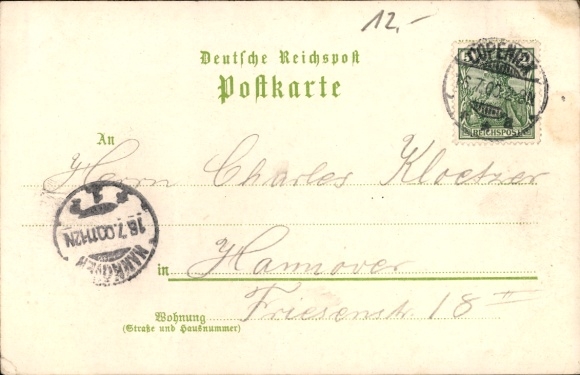 12,-
Deutsche Reichspost
Postkarte
COPENICK
REICHSPOST
An
Herrn Charles Kloetzer
HANNOVER
1
18.7.00.11-12N.
in Hannover
Friesenstr 18 II
Wohnung
(Straße und Hausnummer)